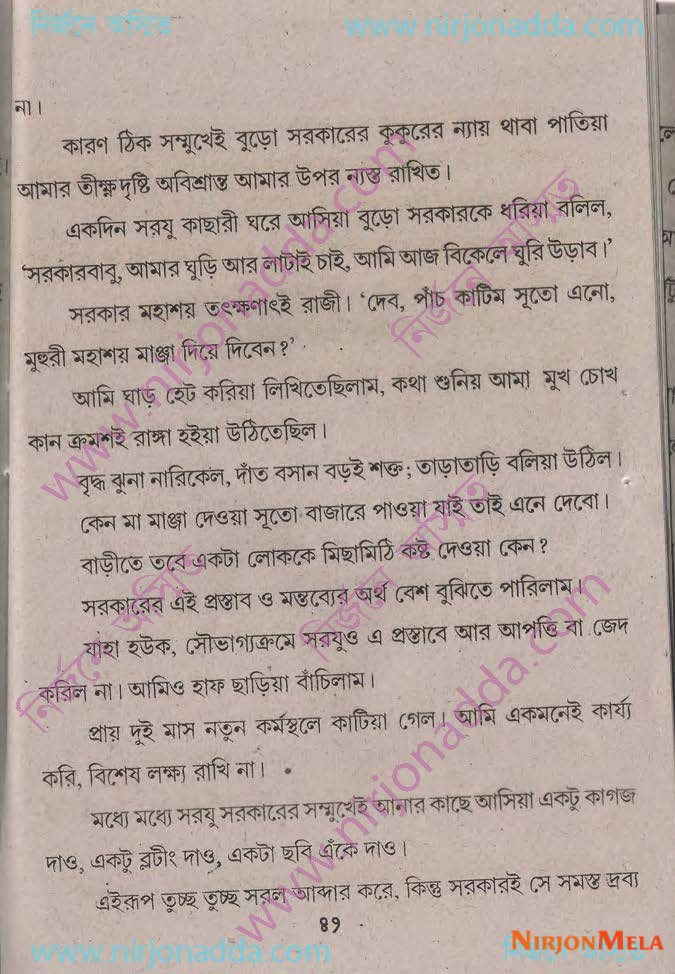 নির্জনে অসিত www.nirjonadda.com
না।
কারণ ঠিক সম্মুখেই বুড়ো সরকারের কুকুরের ন্যায় থাবা পাতিয়া
আমার তীক্ষ্ণদৃষ্টি অবিশ্রান্ত আমার উপর ন্যস্ত রাখিত।
একদিন সরযু কাছারী ঘরে আসিয়া বুড়ো সরকারকে ধরিয়া বলিল,
'সরকারবাবু, আমার ঘুড়ি আর লাটাই চাই, আমি আজ বিকেলে ঘুরি উড়াব।'
সরকার মহাশয় তৎক্ষণাৎই রাজী। 'দেব, পাঁচ কাটিম সূতো এনো,
মুহুরী মহাশয় মাঞ্জা দিয়ে দিবেন?'
আমি ঘাড় হেট করিয়া লিখিতেছিলাম, কথা শুনিয় আমা মুখ চোখ
কান ক্রমশই রাঙ্গা হইয়া উঠিতেছিল।
বৃদ্ধ ঝুনা নারিকেল, দাঁত বসান বড়ই শক্ত; তাড়াতাড়ি বলিয়া উঠিল।
কেন মা মাঞ্জা দেওয়া সূতো বাজারে পাওয়া যাই তাই এনে দেবো।
বাড়ীতে তবে একটা লোককে মিছামিঠি কষ্ট দেওয়া কেন?
সরকারের এই প্রস্তাব ও মন্তব্যের অর্থ বেশ বুঝিতে পারিলাম।
যাহা হউক, সৌভাগ্যক্রমে সরযুও এ প্রস্তাবে আর আপত্তি বা জেদ
করিল না। আমিও হাফ ছাড়িয়া বাঁচিলাম।
প্রায় দুই মাস নতুন কর্মস্থলে কাটিয়া গেল। আমি একমনেই কার্য্য
করি, বিশেষ লক্ষ্য রাখি না।
মধ্যে মধ্যে সরযু সরকারের সম্মুখেই আনার কাছে আসিয়া একটু কাগজ
দাও, একটু ব্লটীং দাও, একটা ছবি এঁকে দাও।
এইরূপ তুচ্ছ তুচ্ছ সরল আব্দার করে, কিন্তু সরকারই সে সমস্ত দ্রব্য
৪৭
www.nirjonadda.com
NIRJONMELA